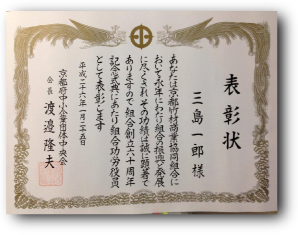 表彰状
三島一郎 様
あなたは京都竹材商業協同組合に
おいて永年にわたり組合の振興と発展
に尽くされその功績は誠に顕著で
ありますので組合創立六十周年
記念式典にあたり組合功労役員
として表彰します
平成二十六年一月二十五日
京都府中小企業団体中央会
会長 渡邉隆夫